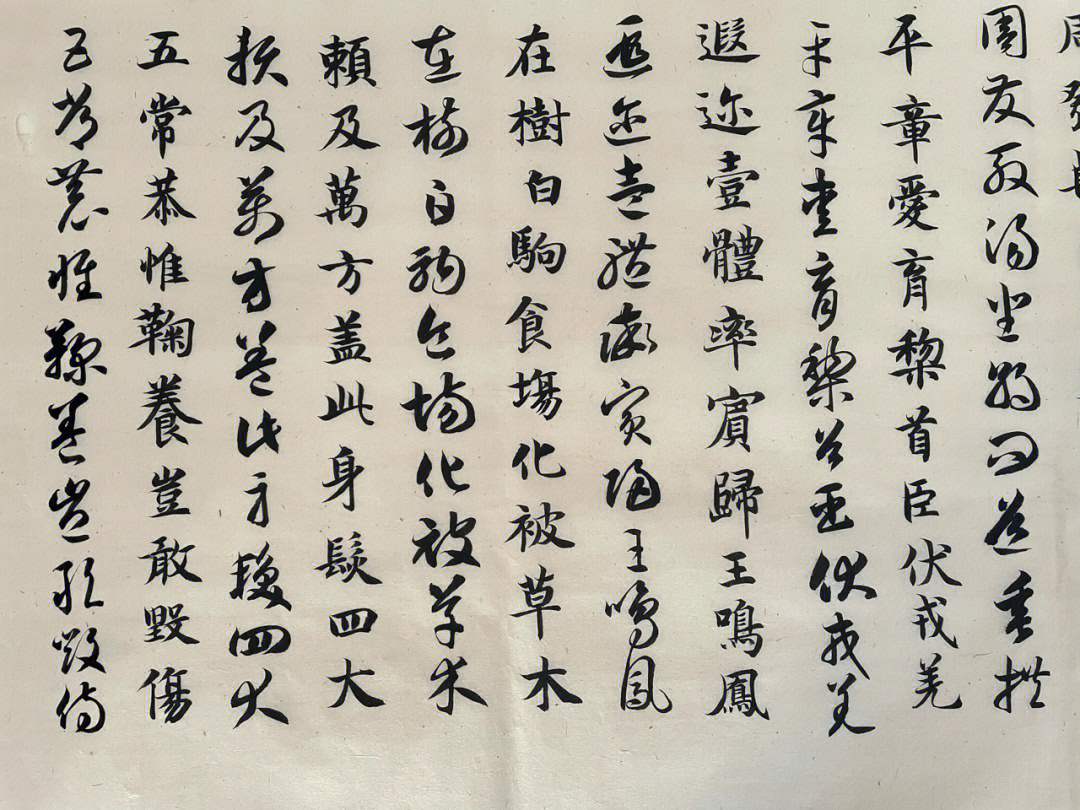 周發殷湯坐朝問道垂拱
平章愛育黎首臣伏戎羌
平章愛育黎首臣伏戎羌
遐迩壹體率賓歸王鳴鳳
遐迩壹體率賓歸王鳴鳳
在樹白駒食塲化被草木
在樹白駒食塲化被草木
賴及萬方盖此身髮四大
賴及萬方盖此身髮四大
五常恭惟鞠養豈敢毀傷
五常恭惟鞠養豈敢毀傷